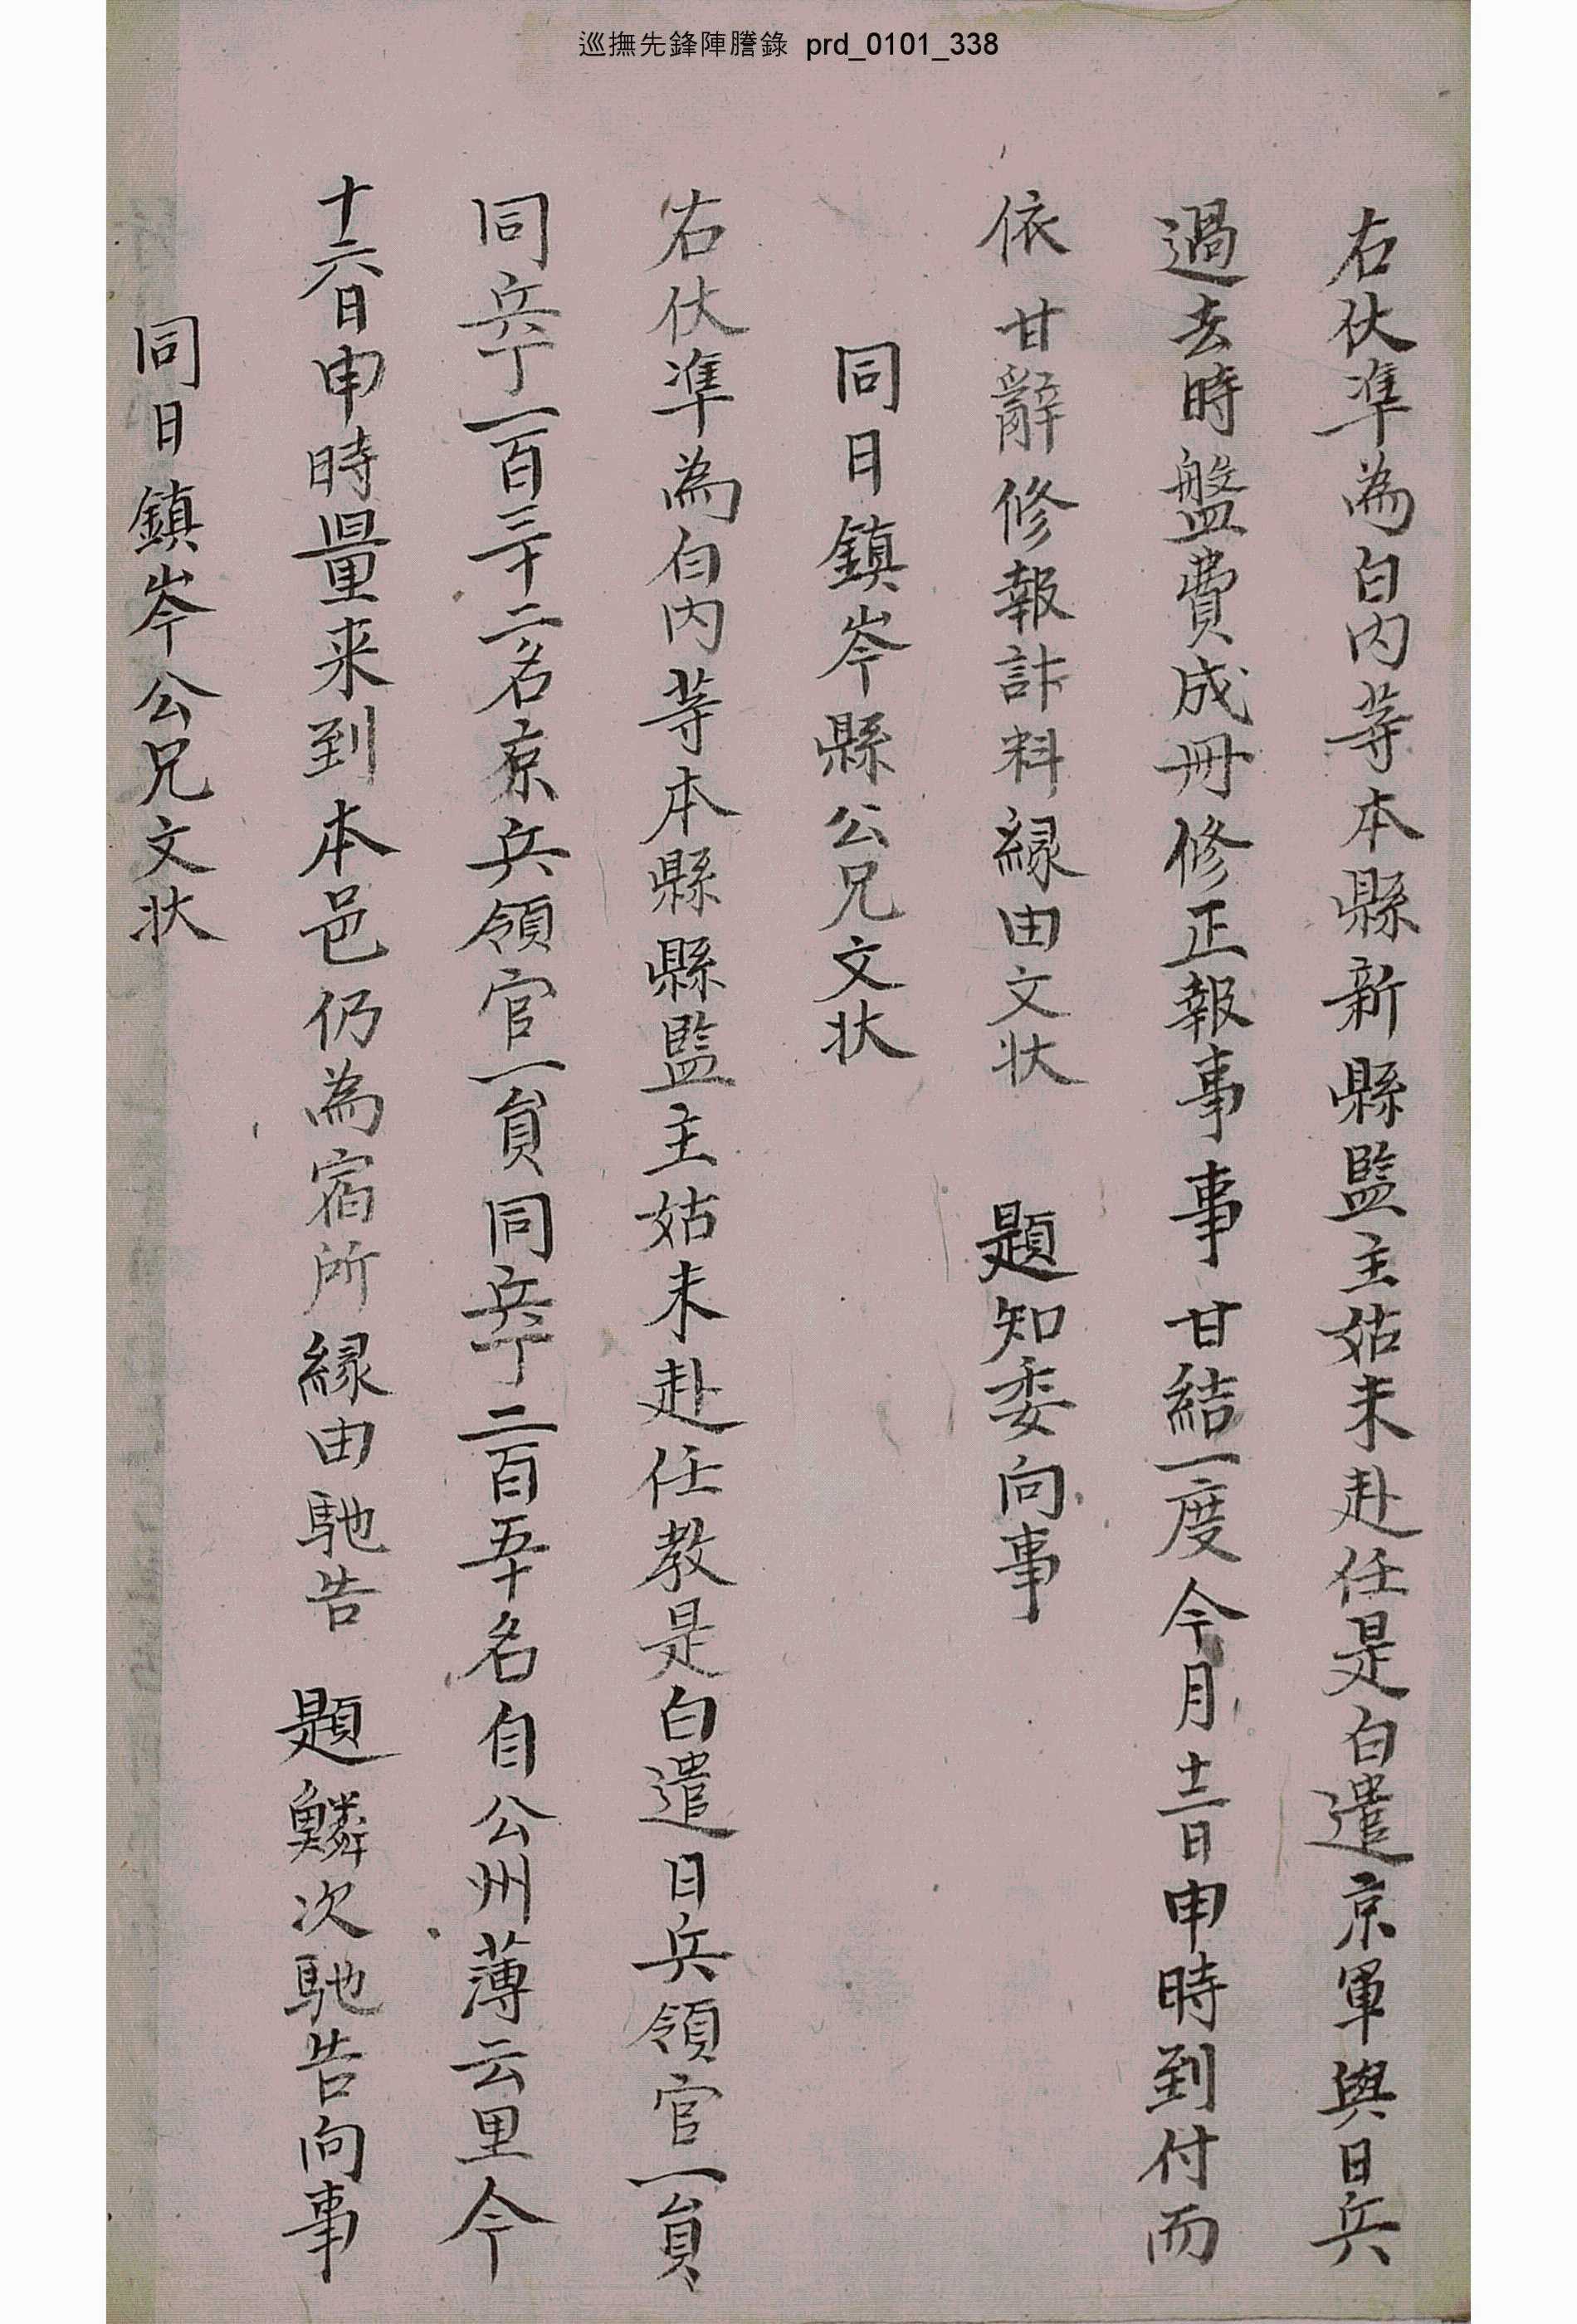 巡撫先鋒陣謄錄 prd_0101_338
右伏準為白内等本縣新縣監主姑未赴任是白遣京軍與日兵
過去時盤費成冊修正報事事甘結一度今月十二日申時到付而
依 甘辭修報計料緣由文状 題知委向事
同日鎮岑縣公兄文状
右伏準為白内等本縣縣監主姑未赴任教是白遣日兵領官一員
同兵丁一百三十二名京兵領官一員同兵丁二百五十名自公州薄云里今
十六日申時量来到本邑仍為宿所緣由馳告 題鱗次馳告向事
同日鎮岑公兄文状